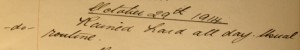 October 29th 1914
-do- Rained hard all day. Usual
routine.